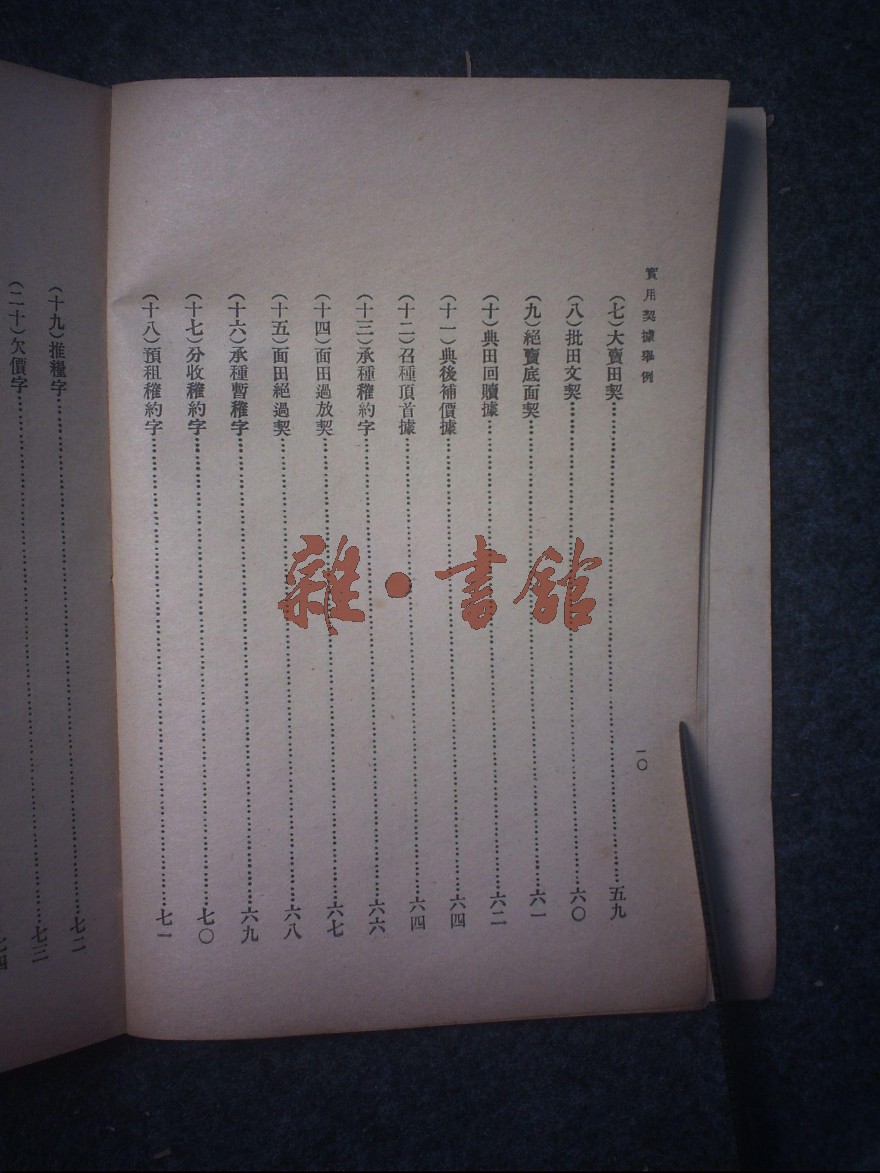 實用契據舉例
一〇
(七)大賣田契…………五九
(八)批田文契…………六〇
(九)絕賣底面契…………六一
(十)典田回贖據…………六二
(十一)典後補價據…………六四
(十二)召種頂首據…………六四
(十三)承種䆉約字…………六六
(十四)面田過放契…………六七
(十五)面田絕過契…………六八
(十六)承種暫䆉字…………六九
(十七)分收䆉約字…………七〇
(十八)預租䆉約字…………七一
(十九)推糧字…………七二
(二十)欠價字…………七三
七四
雜·書館